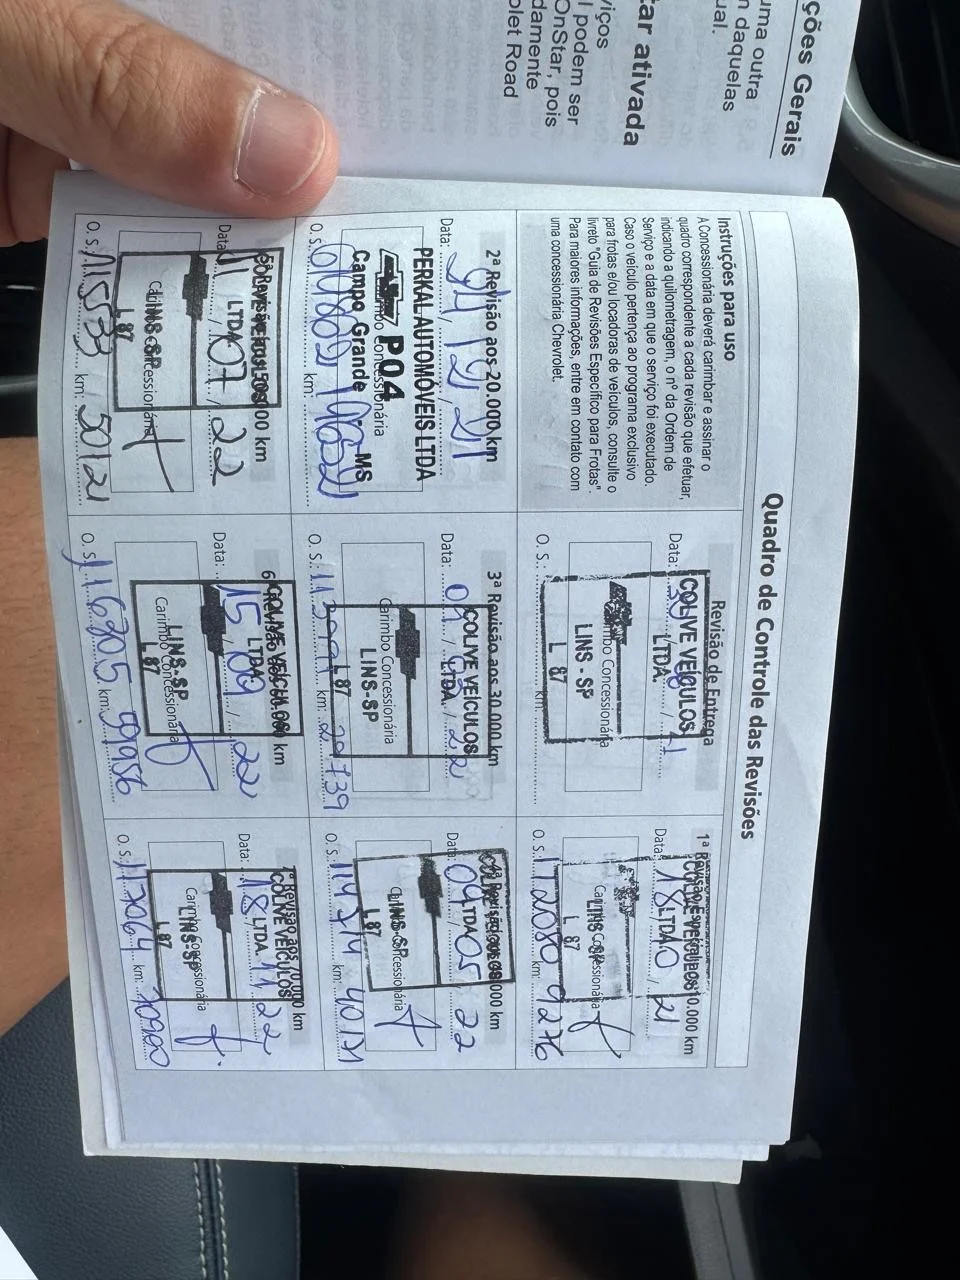 ções Gerais
uma outra
daquelas
ual.
tar ativada
viços
podem ser
OnStar, pois
damente
olet Road
Quadro de Controle das Revisões
Instruções para uso
A Concessionária deverá carimbar e assinar o
quadro correspondente a cada revisão que efetuar,
indicando a quilometragem, o nº da Ordem de
Serviço e a data em que o serviço foi executado.
Caso o veículo pertença ao programa exclusivo
para frotas e/ou locadoras de veículos, consulte o
livreto "Guia de Revisões Específico para Frotas".
Para maiores informações, entre em contato com
uma concessionária Chevrolet.
Revisão de Entrega
COLIVE VEÍCULOS
LTDA.
Data:
Carimbo Concessionária
LINS - SP
L 87
O. S.: km:
1ª Revisão 10.000 km
COLIVE VEÍCULOS
Data: 18/10/21
LTDA
Carimbo Concessionária
LINS - SP
L 87
O. S.: 112080 9276
2ª Revisão aos 20.000 km
Data: 21/12/21
PERKAL AUTOMÓVEIS LTDA
P04
Carimbo Concessionária
Campo Grande - MS
O. S.: km:
3ª Revisão aos 30.000 km
COLIVE VEÍCULOS
LTDA.
Data: 22
Carimbo Concessionária
LINS-SP
L 87
O. S.: km: 29739
4ª Revisão 000 km
COLIVE VEÍCULOS
Data: 04/05/22
LTDA
Carimbo Concessionária
LINS-SP
L 87
O. S.: 114714 40171
5ª Revisão 000 km
COLIVE VEÍCULOS
Data: 11/07/22
LTDA
Carimbo Concessionária
LINS-SP
L 87
O. S.: 115533 km: 50121
6ª Revisão km
COLIVE VEÍCULOS
Data: 15/09/22
LTDA
Carimbo Concessionária
LINS-SP
L 87
O. S.: 116205 km: 59986
7ª Revisão aos 70.000 km
COLIVE VEÍCULOS
Data: 18/11/22
LTDA.
Carimbo Concessionária
LINS-SP
L 87
O. S.: 117064 km: 70900